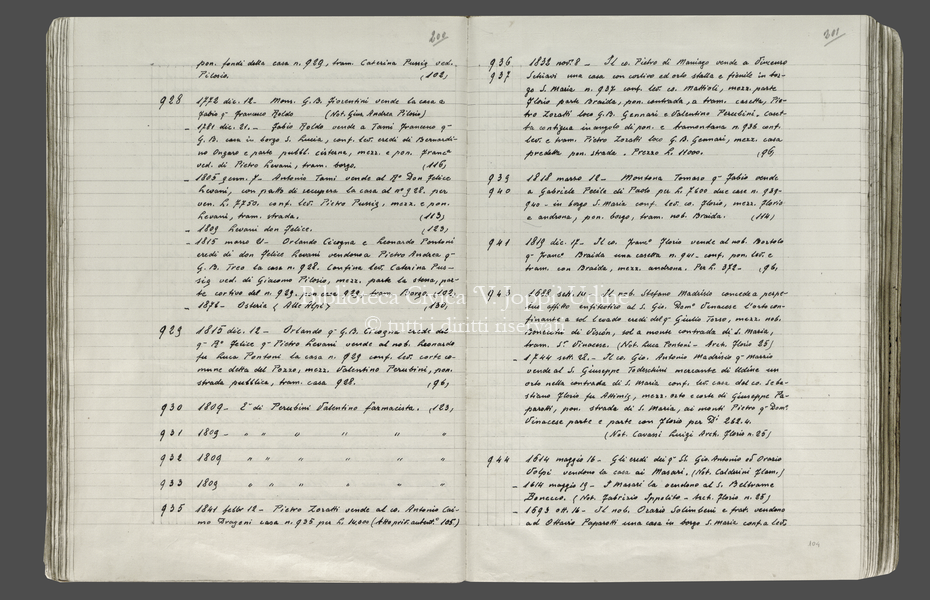 200
pon. fondi della casa n. 929, tram. Caterina Pussig ved.
Pilosio. (102)
928 1772 dic. 12 - Mons. G.B. Fiorentini vende la casa a
Fabio q- Francesco Roldo (Not. Gius. Andrea Pilosio)
- 1781 dic. 21. - Fabio Roldo vende a Tami Francesco q-
G.B. casa in borgo S. Lucia, conf. lev. eredi di Bernardi-
no Ongaro e parte pubbl. cisterna, mezz. e pon. Franc.º
ved. di Pietro Levani, tram. borgo. (116)
- 1805 genn. 7 - Antonio Tami vende al Rº Don Felice
Levani, con patto di recupera la casa al nº 928. per
ven. L. 7750. conf. lev. Pietro Pussig, mezz. e pon.
Levani, tram. strada. (113)
- 1809 Levani don Felice. (123)
- 1815 marzo 21 - Orlando Cicogna e Leonardo Pontoni
eredi di don Felice Levani vendono a Pietro Andrea q-
G.B. Treo la casa n. 928. Confina lev. Caterina Pus-
sig ved. di Giacomo Pilosio, mezz. parte la stessa, par-
te cortivo del n. 929, pon. 929, tram. borgo. (102-
- 1876 - Osteria (Alle Alpi) 130)
929 1815 dic. 12 - Orlando q- G.B. Cicogna erede del
q- Rº Felice q- Pietro Levani vende al nob. Leonardo
fu Luca Pontoni la casa n. 929 conf. lev. corte co-
mune detta del Pozzo, mezz. Valentino Perubini, pon.
strada pubblica, tram. casa 928. (96)
930 1809 - È di Perubini Valentino farmacista. (123)
931 1809 - " " " " " "
932 1809 " " " " " "
933 1809 " " " " " "
935 1841 febbr 12 - Pietro Zoratti vende al co. Antonio Cai-
mo Dragoni casa n. 935 per L. 14000 (Atto priv. autent.º 105)
201
936 1832 nov. 8 - Il co. Pietro di Maniago vende a Vincenzo
937 Schiavi una casa con cortivo ed orto stalla e fienile in bor-
go S. Maria n. 937 conf. lev. co. Mattioli, mezz. parte
Florio parte Braida, pon. contrada, a tram. casetta, Pie-
tro Zoratti loco G.B. Gennari e Valentino Perubini, caset-
ta contigua in angolo di pon. e tramontana n. 936 conf.
lev. e tram. Pietro Zoratti loco G.B. Gennari, mezz. casa
predetta pon. strada. Prezzo L. 11000. (96)
939 1818 marzo 12 - Montona Tomaso q- Fabio vende
940 a Gabriele Pecile di Paolo per L. 7600 due case n. 939-
940 - in borgo S. Maria conf. lev. co. Florio, mezz. Florio
e androna, pon. borgo, tram. nob. Braida. (114)
941 1819 dic. 17 - Il co. Franc.º Florio vende al nob. Bortolo
q- Franc.º Braida una casetta n. 941 - conf. pon. lev. e
tram. con Braida, mezz. androna. Per L. 372 - (96)
943 1688 sett. 14 - Il nob. Stefano Madrisio concede a perpe-
tuo affitto enfiteotico al S. Gio. Dom.º Vinacese l'orto con-
finante a sol levado eredi del q- Giulio Torso, mezz. nob.
tram. Sr. Vinacese. (Not. Luca Pontoni - Arch. Florio 25)
- 1744 sett. 22. - Il co. Gio. Antonio Madrisio q- Marzio
vende al S. Giuseppe Tedeschini mercante di Udine un
orto nella contrada di S. Maria conf. lev. case del co. Seba-
stiano Florio fu Attimis, mezz. orto e corte di Giuseppe Pa-
parotti, pon. strada di S. Maria, ai monti Pietro q- Dom.º
Vinacese parte e parte con Florio per D.ti 262.4.
(Not. Cavassi Luigi Arch. Florio n. 25)
944 1614 maggio 16 - Gli eredi dei q- SS. Gio. Antonio ed Orazio
Volpi vendono la casa ai Masari. (Not. Calderini Flam.)
- 1614 maggio 19 - I Masari la vendono al S. Beltrame
Bonecco. (Not. Fabrizio Ippolito - Arch. Florio n. 25)
- 1693 ott. 16 - Il nob. Orazio Solimbeni e frat. vendono
ad Ottavio Paparotti una casa in borgo S. Maria conf. a lev.
Biblioteca Civica 'V. Joppi' Udine
© tutti i diritti riservati